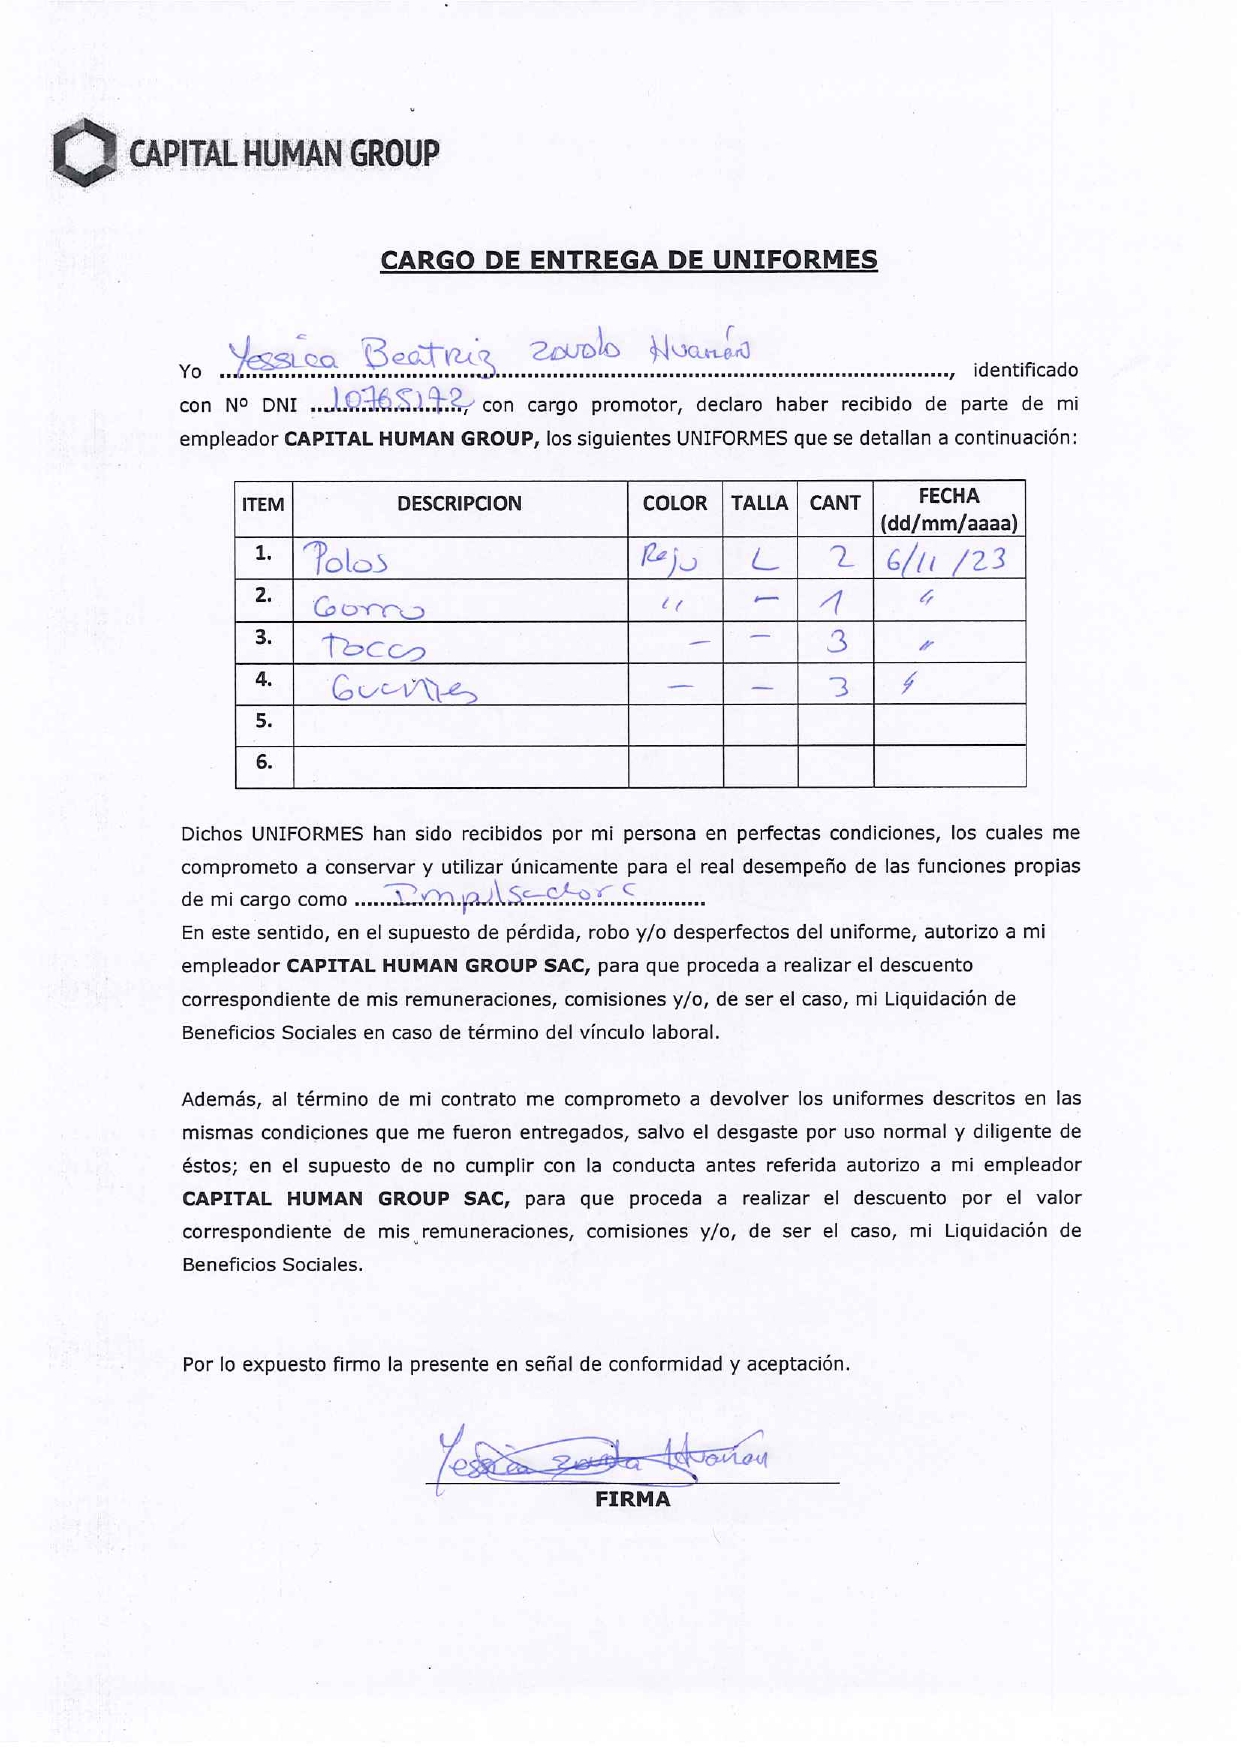 CAPITAL HUMAN GROUP
CARGO DE ENTREGA DE UNIFORMES
Yo Yessica Beatriz Zavala Huamán, identificado
con Nº DNI 10765172, con cargo promotor, declaro haber recibido de parte de mi
empleador CAPITAL HUMAN GROUP, los siguientes UNIFORMES que se detallan a continuación:
ITEM DESCRIPCION COLOR TALLA CANT FECHA (dd/mm/aaaa)
1. Polos Rojo L 2 6/11/23
2. Gorro " - 1 "
3. Tocas - - 3 "
4. Guantes - - 3 "
5.
6.
Dichos UNIFORMES han sido recibidos por mi persona en perfectas condiciones, los cuales me
comprometo a conservar y utilizar únicamente para el real desempeño de las funciones propias
de mi cargo como Impulsadora
En este sentido, en el supuesto de pérdida, robo y/o desperfectos del uniforme, autorizo a mi
empleador CAPITAL HUMAN GROUP SAC, para que proceda a realizar el descuento
correspondiente de mis remuneraciones, comisiones y/o, de ser el caso, mi Liquidación de
Beneficios Sociales en caso de término del vínculo laboral.
Además, al término de mi contrato me comprometo a devolver los uniformes descritos en las
mismas condiciones que me fueron entregados, salvo el desgaste por uso normal y diligente de
éstos; en el supuesto de no cumplir con la conducta antes referida autorizo a mi empleador
CAPITAL HUMAN GROUP SAC, para que proceda a realizar el descuento por el valor
correspondiente de mis remuneraciones, comisiones y/o, de ser el caso, mi Liquidación de
Beneficios Sociales.
Por lo expuesto firmo la presente en señal de conformidad y aceptación.
Yessica Zavala
FIRMA